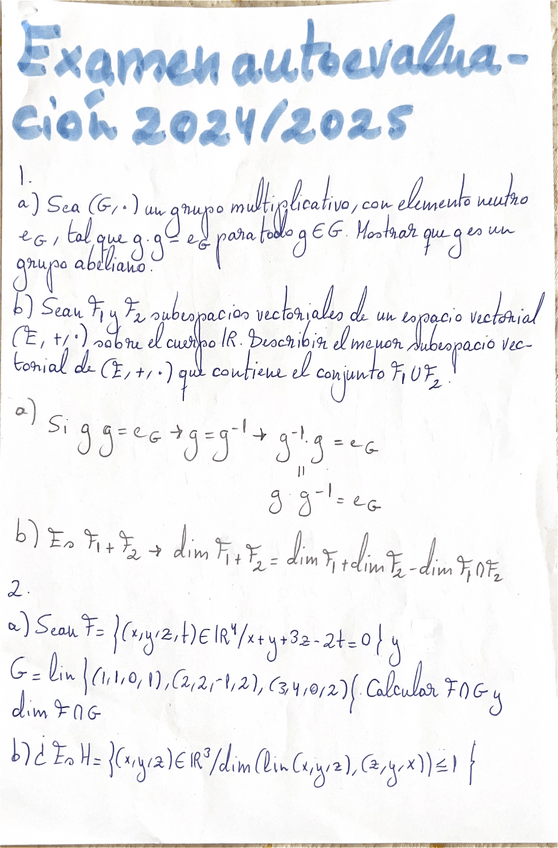 Examen autoevalua-
ción 2024/2025
1.
a) Sea (G,·) un grupo multiplicativo, con elemento neutro
e_G, tal que g·g = e_G para todo g ∈ G. Mostrar que g es un
grupo abeliano.
b) Sean F₁ y F₂ subespacios vectoriales de un espacio vectorial
(E,+,·) sobre el cuerpo IR. Describir el menor subespacio vec-
torial de (E,+,·) que contiene el conjunto F₁∪F₂.
a) Si g g = e_G → g = g⁻¹ → g⁻¹·g = e_G
=
g·g⁻¹ = e_G
b) Es F₁+F₂ → dim F₁+F₂ = dim F₁+dim F₂-dim F₁∩F₂
2.
a) Sean F = {(x,y,z,t)∈IR⁴/x+y+3z-2t=0} y
G = lin {(1,1,0,1),(2,2,-1,2),(3,4,0,2)}. Calcular F∩G y
dim F∩G
b) ¿Es H = {(x,y,z)∈IR³/dim(lin(x,y,z),(z,y,x))≤1}